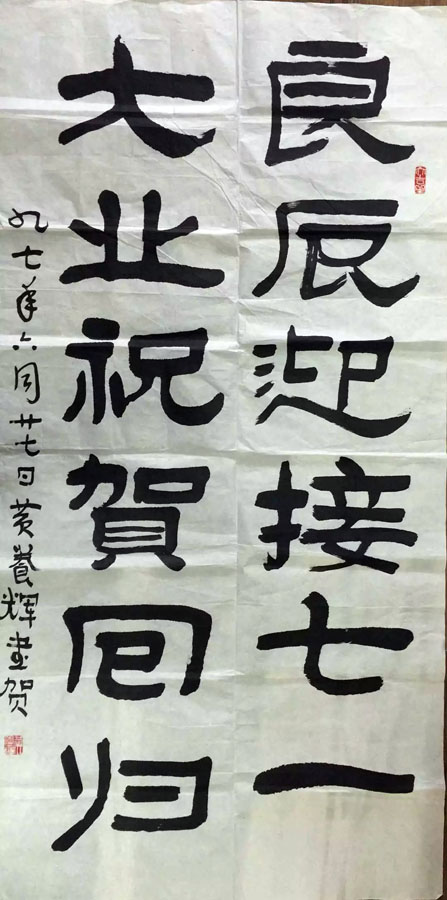 良辰迎接七一
大业祝贺回归
九七年六月廿七日黄养辉书贺